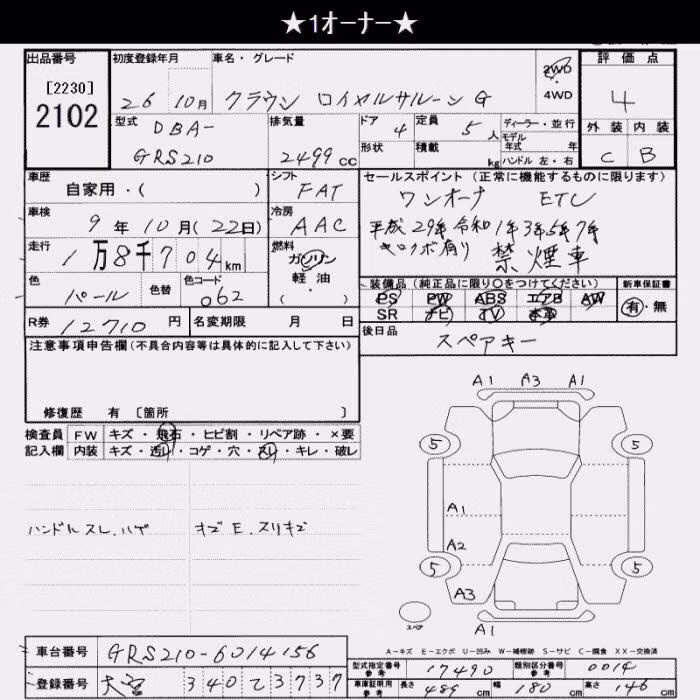 ★1オーナー★
出品番号
[2230]
2102
初度登録年月
26 10月
車名・グレード
クラウン ロイヤルサルーンG
2WD
4WD
評価点
4
外装 内装
C B
型式 DBA-
GRS210
排気量
2499 cc
ドア 4
形状
定員 5 人
積載 kg
ディーラー・並行
モデル
年式 年
ハンドル 左・右
車歴
自家用・( )
シフト
FAT
車検
9年10月(22日)
冷房
AAC
走行
1万8千704km
燃料
ガソリン
・
軽・油
( )
色
パール
色替
色コード
062
R券 12710円
名変期限 月 日
セールスポイント(正常に機能するものに限ります)
ワンオーナ ETC
平成29年令和1年3年5年7年
キロクボ有り 禁煙車
装備品(純正品に限り○をつけてください)
PS PW ABS エアB AW
SR ナビ TV 本革
新車保証書
有・無
後日品
スペアキー
注意事項申告欄(不具合内容等は具体的に記入して下さい)
修復歴 有 〔箇所 〕
検査員
記入欄
FW キズ・飛石・ヒビ割・リペア跡・×要
内装 キズ・汚レ・コゲ・穴・スレ・キレ・破レ
ハンドルスレ.ハゲ
キズE.スリキズ
A1 A3 A1
5 5
A1
A2
5 5
A3
A1
スペア
A-キズ E-エクボ U-凹み W-補修跡 S-サビ C-腐食 XX-交換済
車台番号 GRS210-6014156
登録番号 大宮 340 と 3737
型式指定番号
参考
17490
類別区分番号
参考
0014
車庫証明用
参考
長さ 489 cm 幅 180 cm 高さ 146 cm